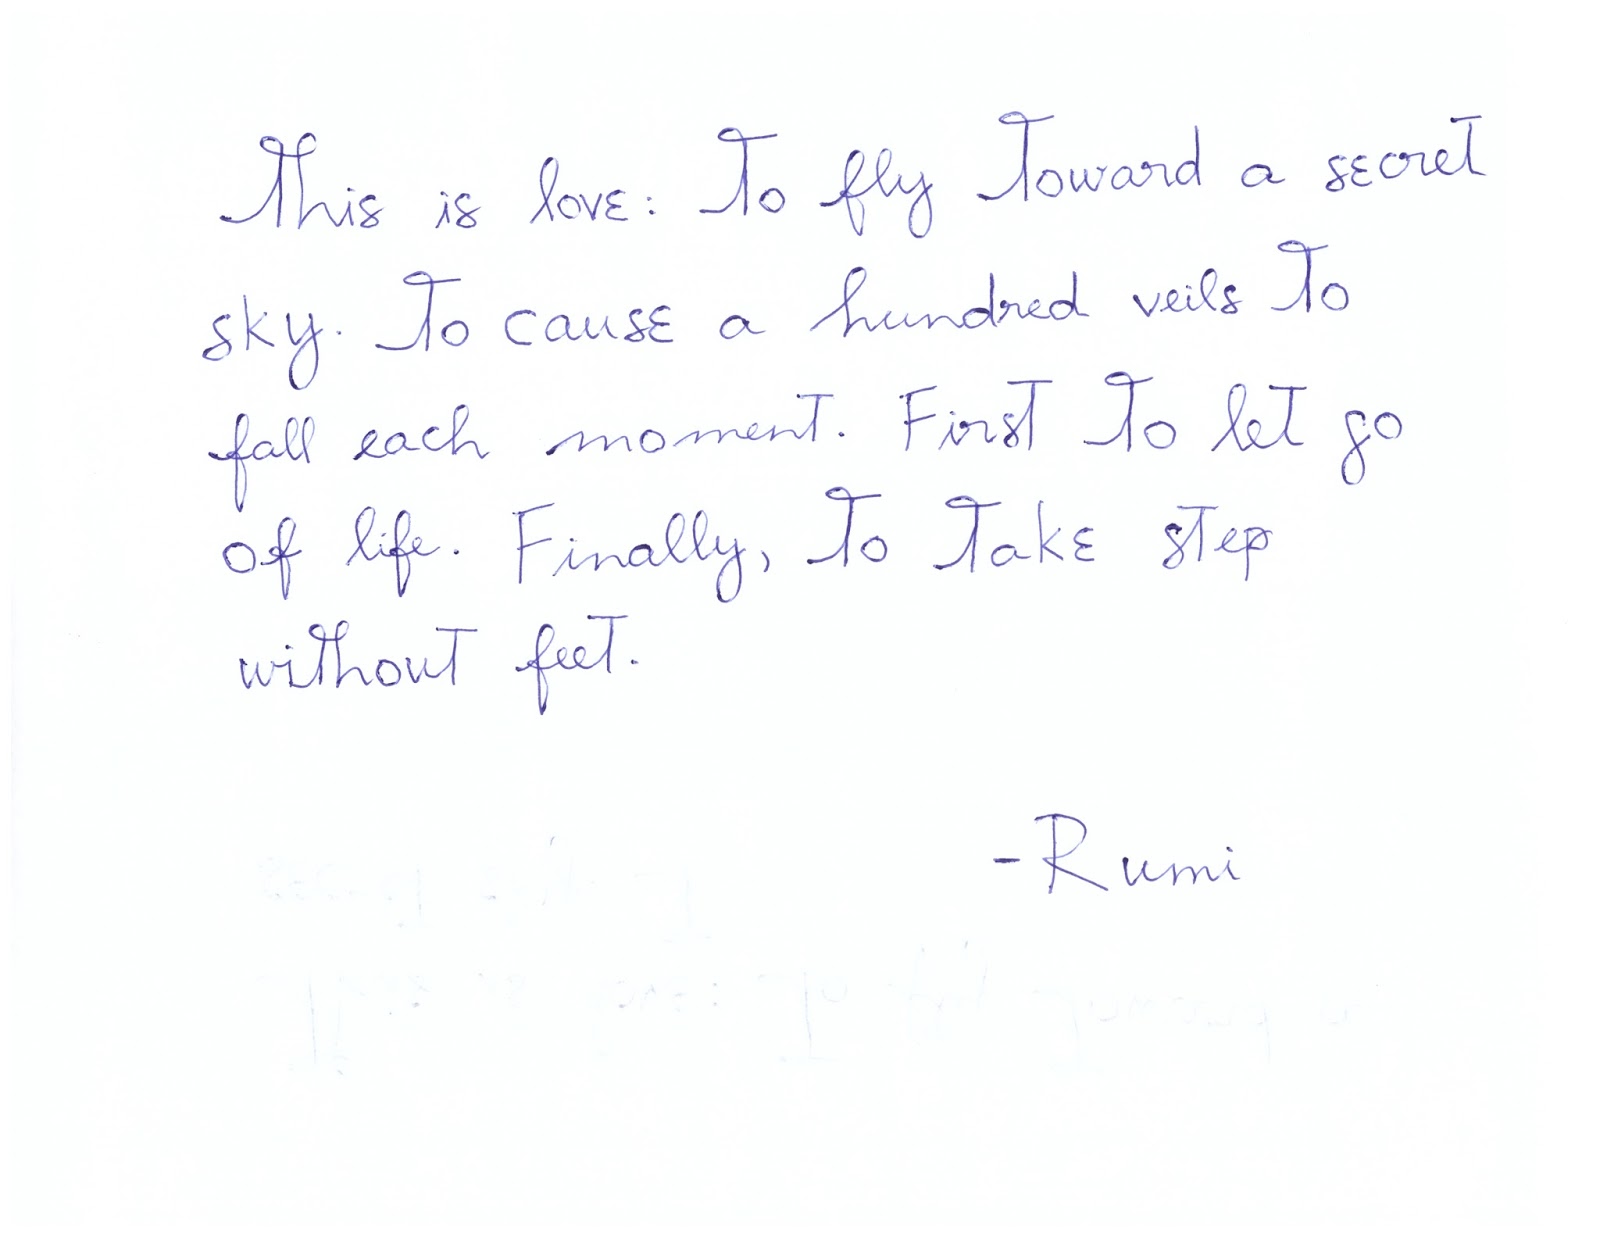 This is love: To fly Toward a secret
sky. To cause a hundred veils To
fall each moment. First To let go
of life. Finally, To Take step
without feet.
-Rumi